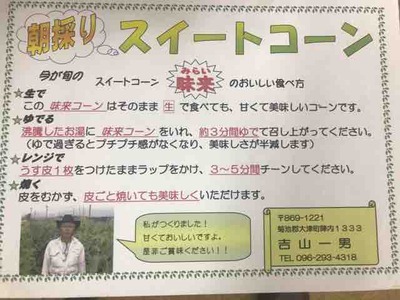 朝採り スイートコーン
今が旬の スイートコーン 味来 のおいしい食べ方
みらい
★生で
この 味来コーン はそのまま 生 で食べても、甘くて美味しいコーンです。
★ゆでる
沸騰したお湯に 味来コーン をいれ、約3分間ゆでて召し上がってください。
(ゆで過ぎるとプチプチ感がなくなり、美味しさが半減します)
★レンジで
うす皮1枚をつけたままラップをかけ、3～5分間チーンしてください。
★焼く
皮をむかず、皮ごと焼いても美味しくいただけます。
私がつくりました!
甘くておいしいですよ。
是非ご賞味ください!!
〒869-1221
菊池郡大津町陣内1333
吉山一男
TEL 096-293-4318